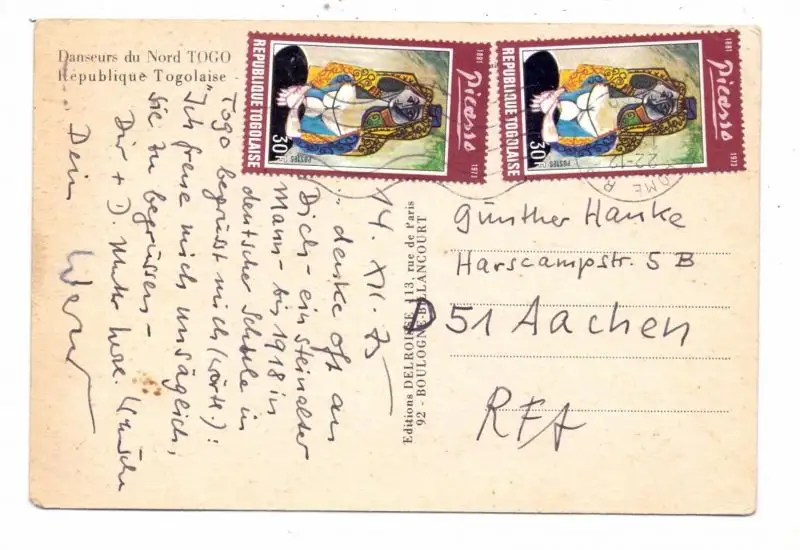 Danseurs du Nord TOGO
République Togolaise
REPUBLIQUE TOGOLAISE
30F
POSTES
Picasso
1881
1973
REPUBLIQUE TOGOLAISE
30F
POSTES
Picasso
1881
1973
22-12
LOME R
14. XII. 75
... denke oft an
Dich - ein steinalter
Mann - bis 1918 in
deutscher Schule in
Togo begrüsst mich (wörtl.):
"Ich freue mich unsäglich,
Sie zu begrüssen -
Dir + D. Mutter herzl. Wünsche
Dein Werner
Editions DELROISSE, 113, rue de Paris
92 - BOULOGNE-BILLANCOURT
Günther Hanke
Harscampstr. 5 B
D 51 Aachen
RFA